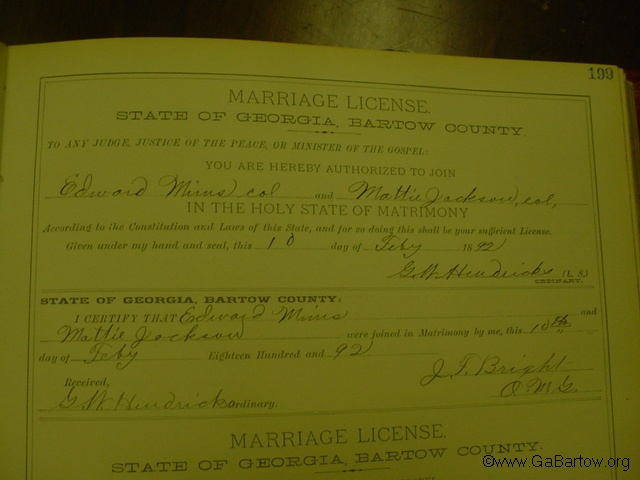 199
MARRIAGE LICENSE.
STATE OF GEORGIA, BARTOW COUNTY.
TO ANY JUDGE, JUSTICE OF THE PEACE, OR MINISTER OF THE GOSPEL:
YOU ARE HEREBY AUTHORIZED TO JOIN
Edward Mims col and Mattie Jackson, col,
IN THE HOLY STATE OF MATRIMONY
According to the Constitution and Laws of this State, and for so doing this shall be your sufficient License.
Given under my hand and seal, this 10 day of Feby 1892
G.W. Hendricks (L. S.)
ORDINARY.
STATE OF GEORGIA, BARTOW COUNTY:
I CERTIFY THAT Edward Mims and
Mattie Jackson were joined in Matrimony by me, this 10th
day of Feby Eighteen Hundred and 92
Received, J. T. Bright
G.W. Hendricks Ordinary. O.M.G.
MARRIAGE LICENSE.
STATE OF GEORGIA, BARTOW COUNTY.
©www.GaBartow.org